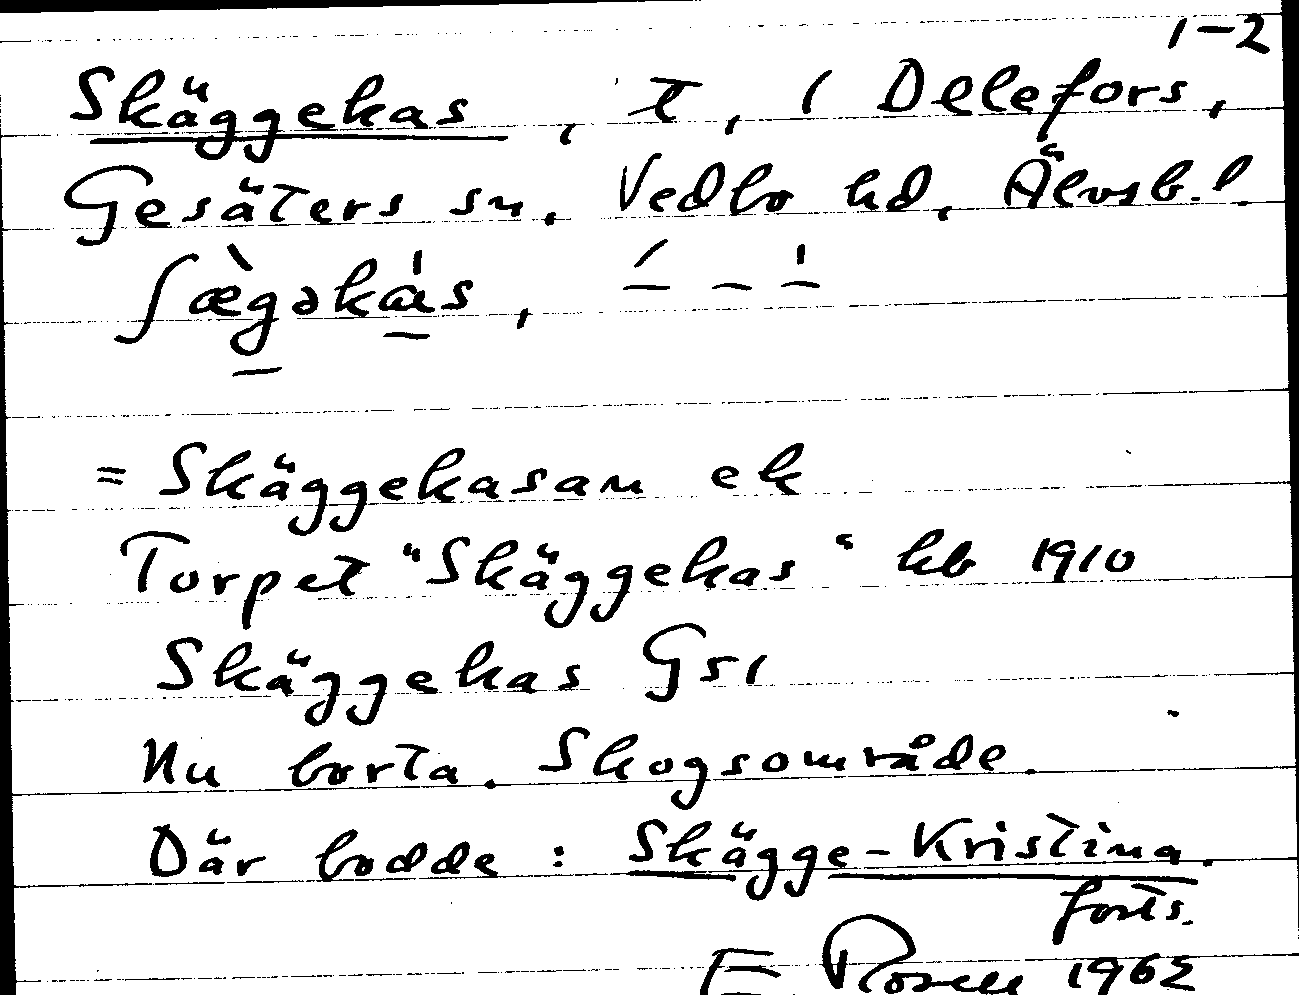 1-2
Skäggekas, t, i Dllefors,
Gesäters sn, Vedbo hd, Älvsb. l.
ʃæ̀gəkás,
= Skäggekasan ek
Torpet "Skäggekas" kb 1910
Skäggekas Gs1
Nu borta. Skogsområde.
Där bodde: Skägge-Kristina.
forts.
E Rosell 1962